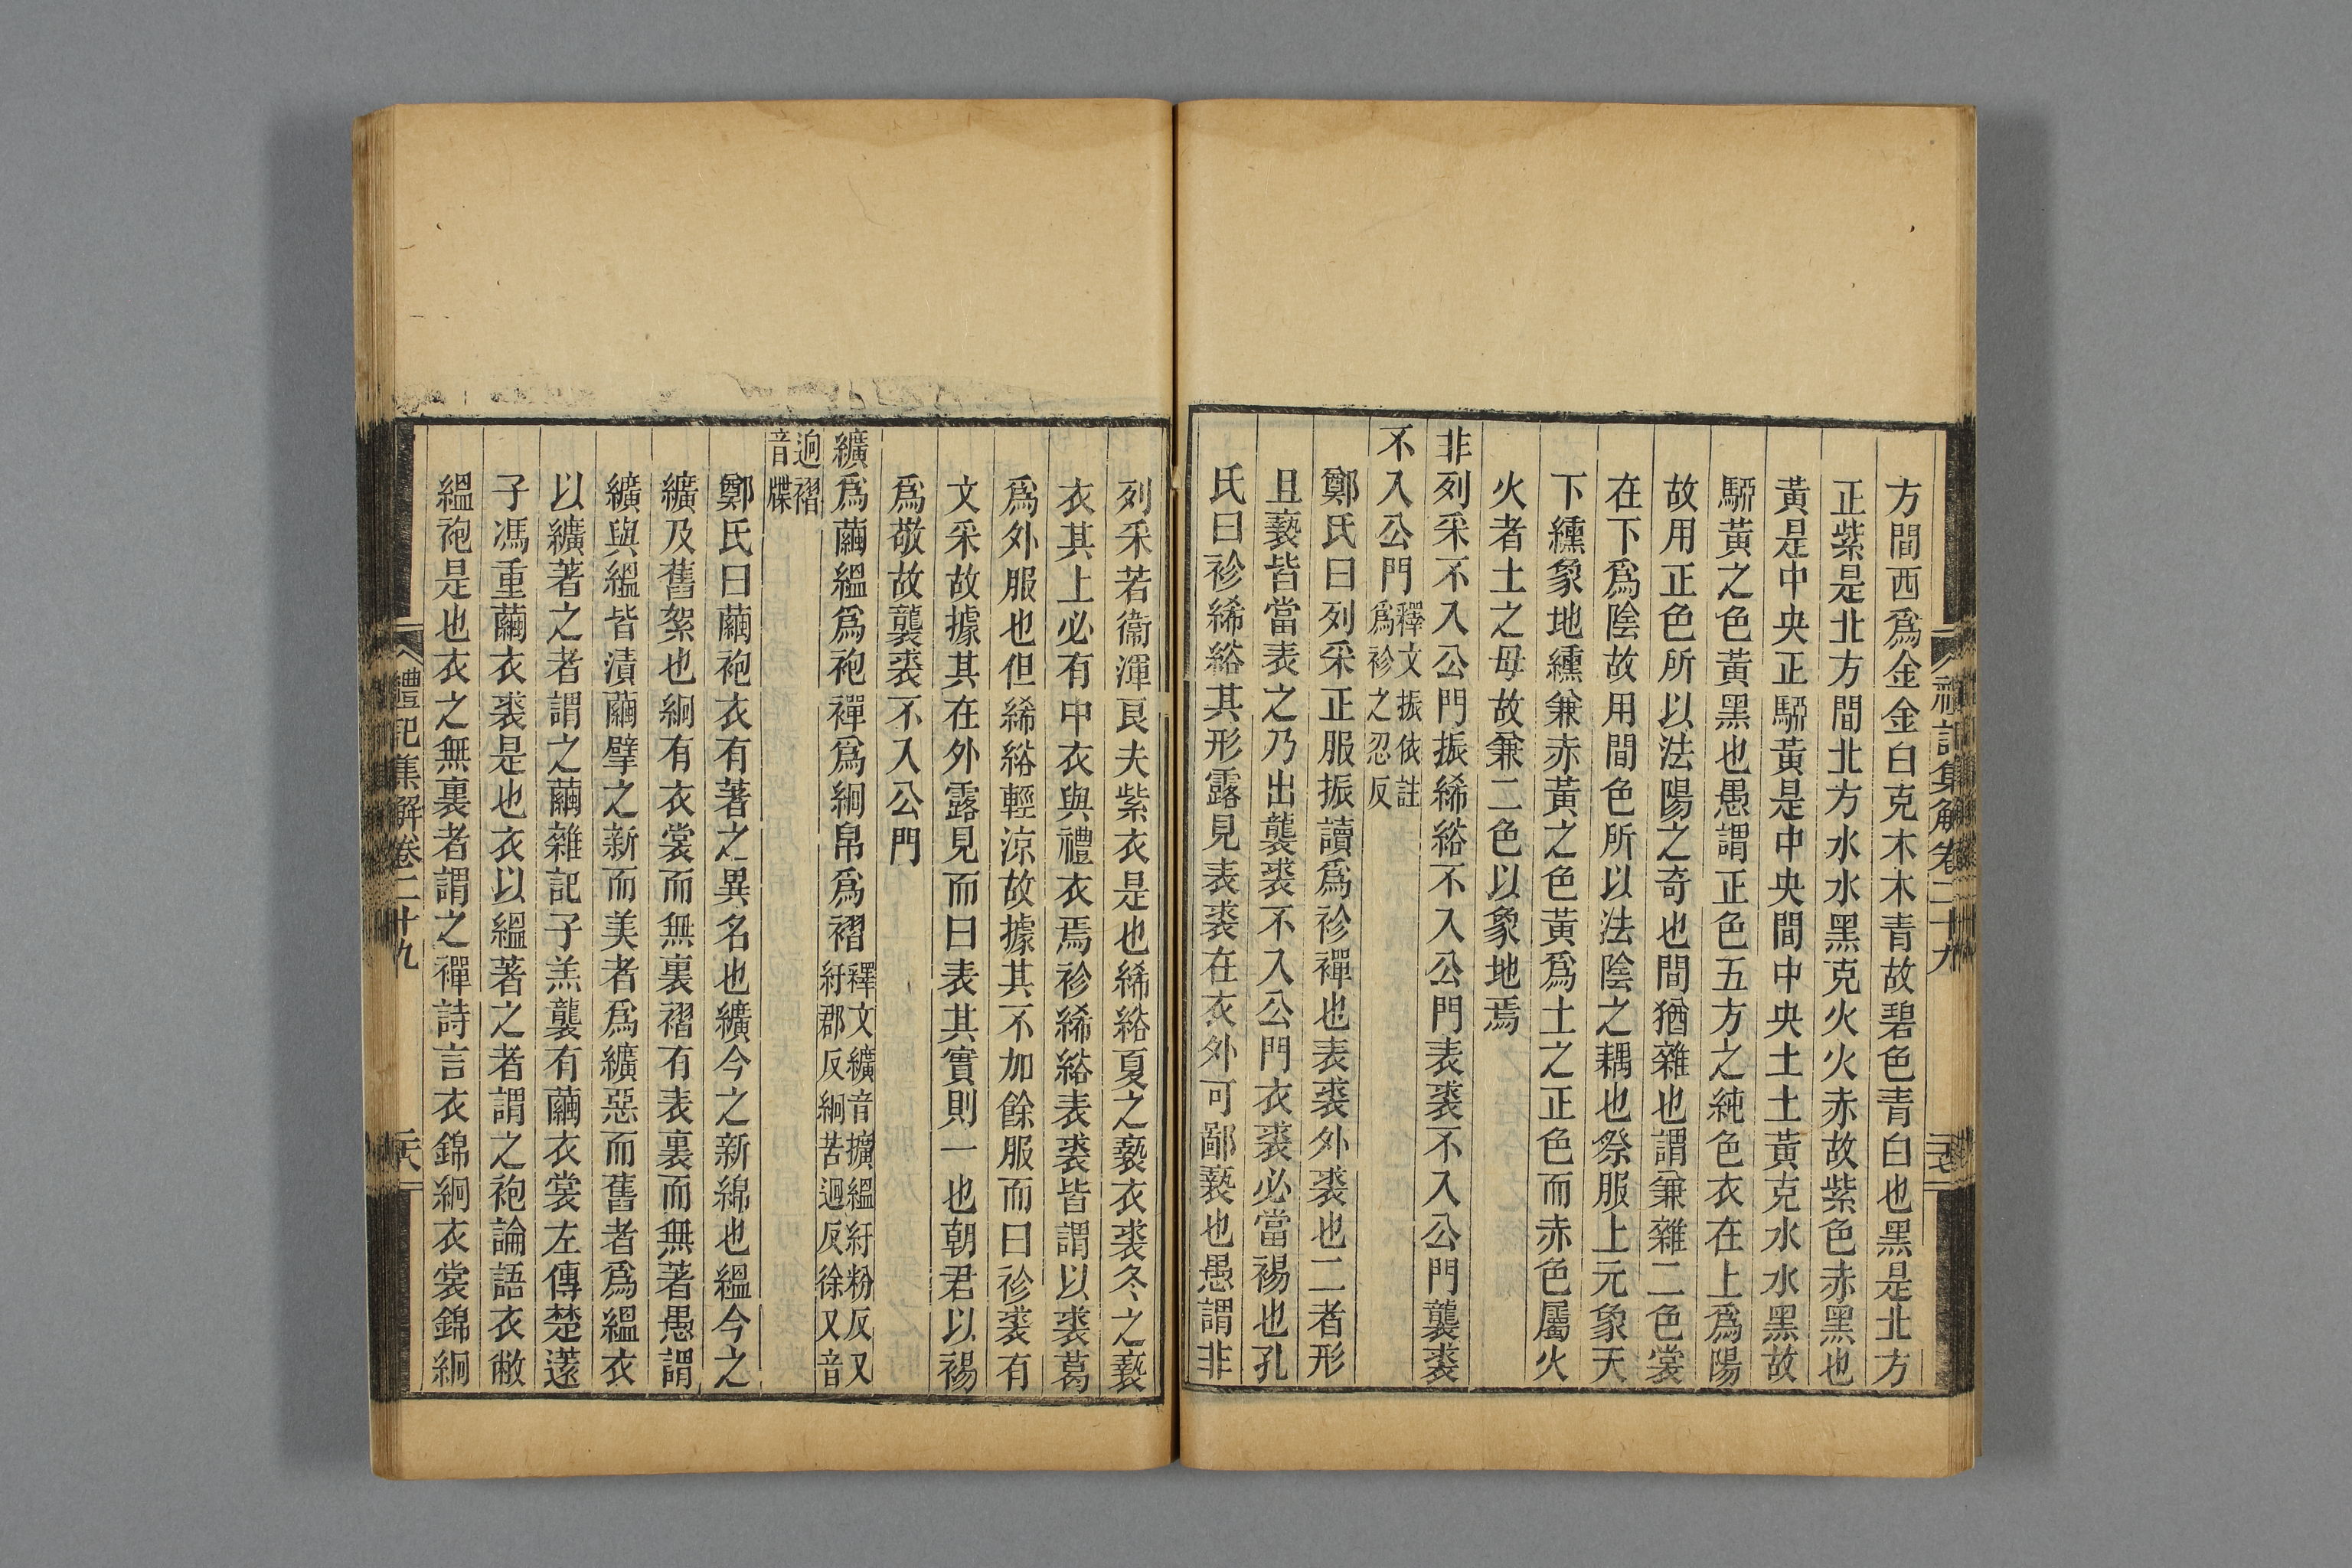 方間西爲金金白克木木青故碧色青白也黑是北方
正紫是北方間北方水水黑克火火赤故紫色赤黑也
黃是中央正騮黃是中央間中央土土黃克水水黑故
騮黃之色黃黑也愚謂正色五方之純色衣在上爲陽
故用正色所以法陽之奇也間猶雜也謂兼雜二色裳
在下爲陰故用間色所以法陰之耦也祭服上元象天
下纁象地纁兼赤黃之色黃爲土之正色而赤色屬火
火者土之母故兼二色以象地焉
非列采不入公門振絺綌不入公門表裘不入公門襲裘
不入公門釋文振依註
爲袗之忍反
鄭氏曰列采正服振讀爲袗襌也表裘外裘也二者形
且褻皆當表之乃出襲裘不入公門衣裘必當裼也孔
氏曰袗絺綌其形露見表裘在衣外可鄙褻也愚謂非
列采若衞渾良夫紫衣是也絺綌夏之褻衣裘冬之褻
衣其上必有中衣與禮衣焉袗絺綌表裘皆謂以裘葛
爲外服也但絺綌輕涼故據其不加餘服而曰袗裘有
文采故據其在外露見而曰表其實則一也朝君以裼
爲敬故襲裘不入公門
纊爲繭縕爲袍襌爲絅帛爲褶釋文纊音擴縕紆粉反又
紆郡反絅苦迥反徐又音
迥褶
音牒
鄭氏曰繭袍衣有著之異名也纊今之新綿也縕今之
纊及舊絮也絅有衣裳而無裏褶有表裏而無著愚謂
纊與縕皆漬繭擘之新而美者爲纊惡而舊者爲縕衣
以纊著之者謂之繭雜記子羔襲有繭衣裳左傳楚薳
子馮重繭衣裘是也衣以縕著之者謂之袍論語衣敝
縕袍是也衣之無裏者謂之襌詩言衣錦絅衣裳錦絅
禮記集解卷二十九